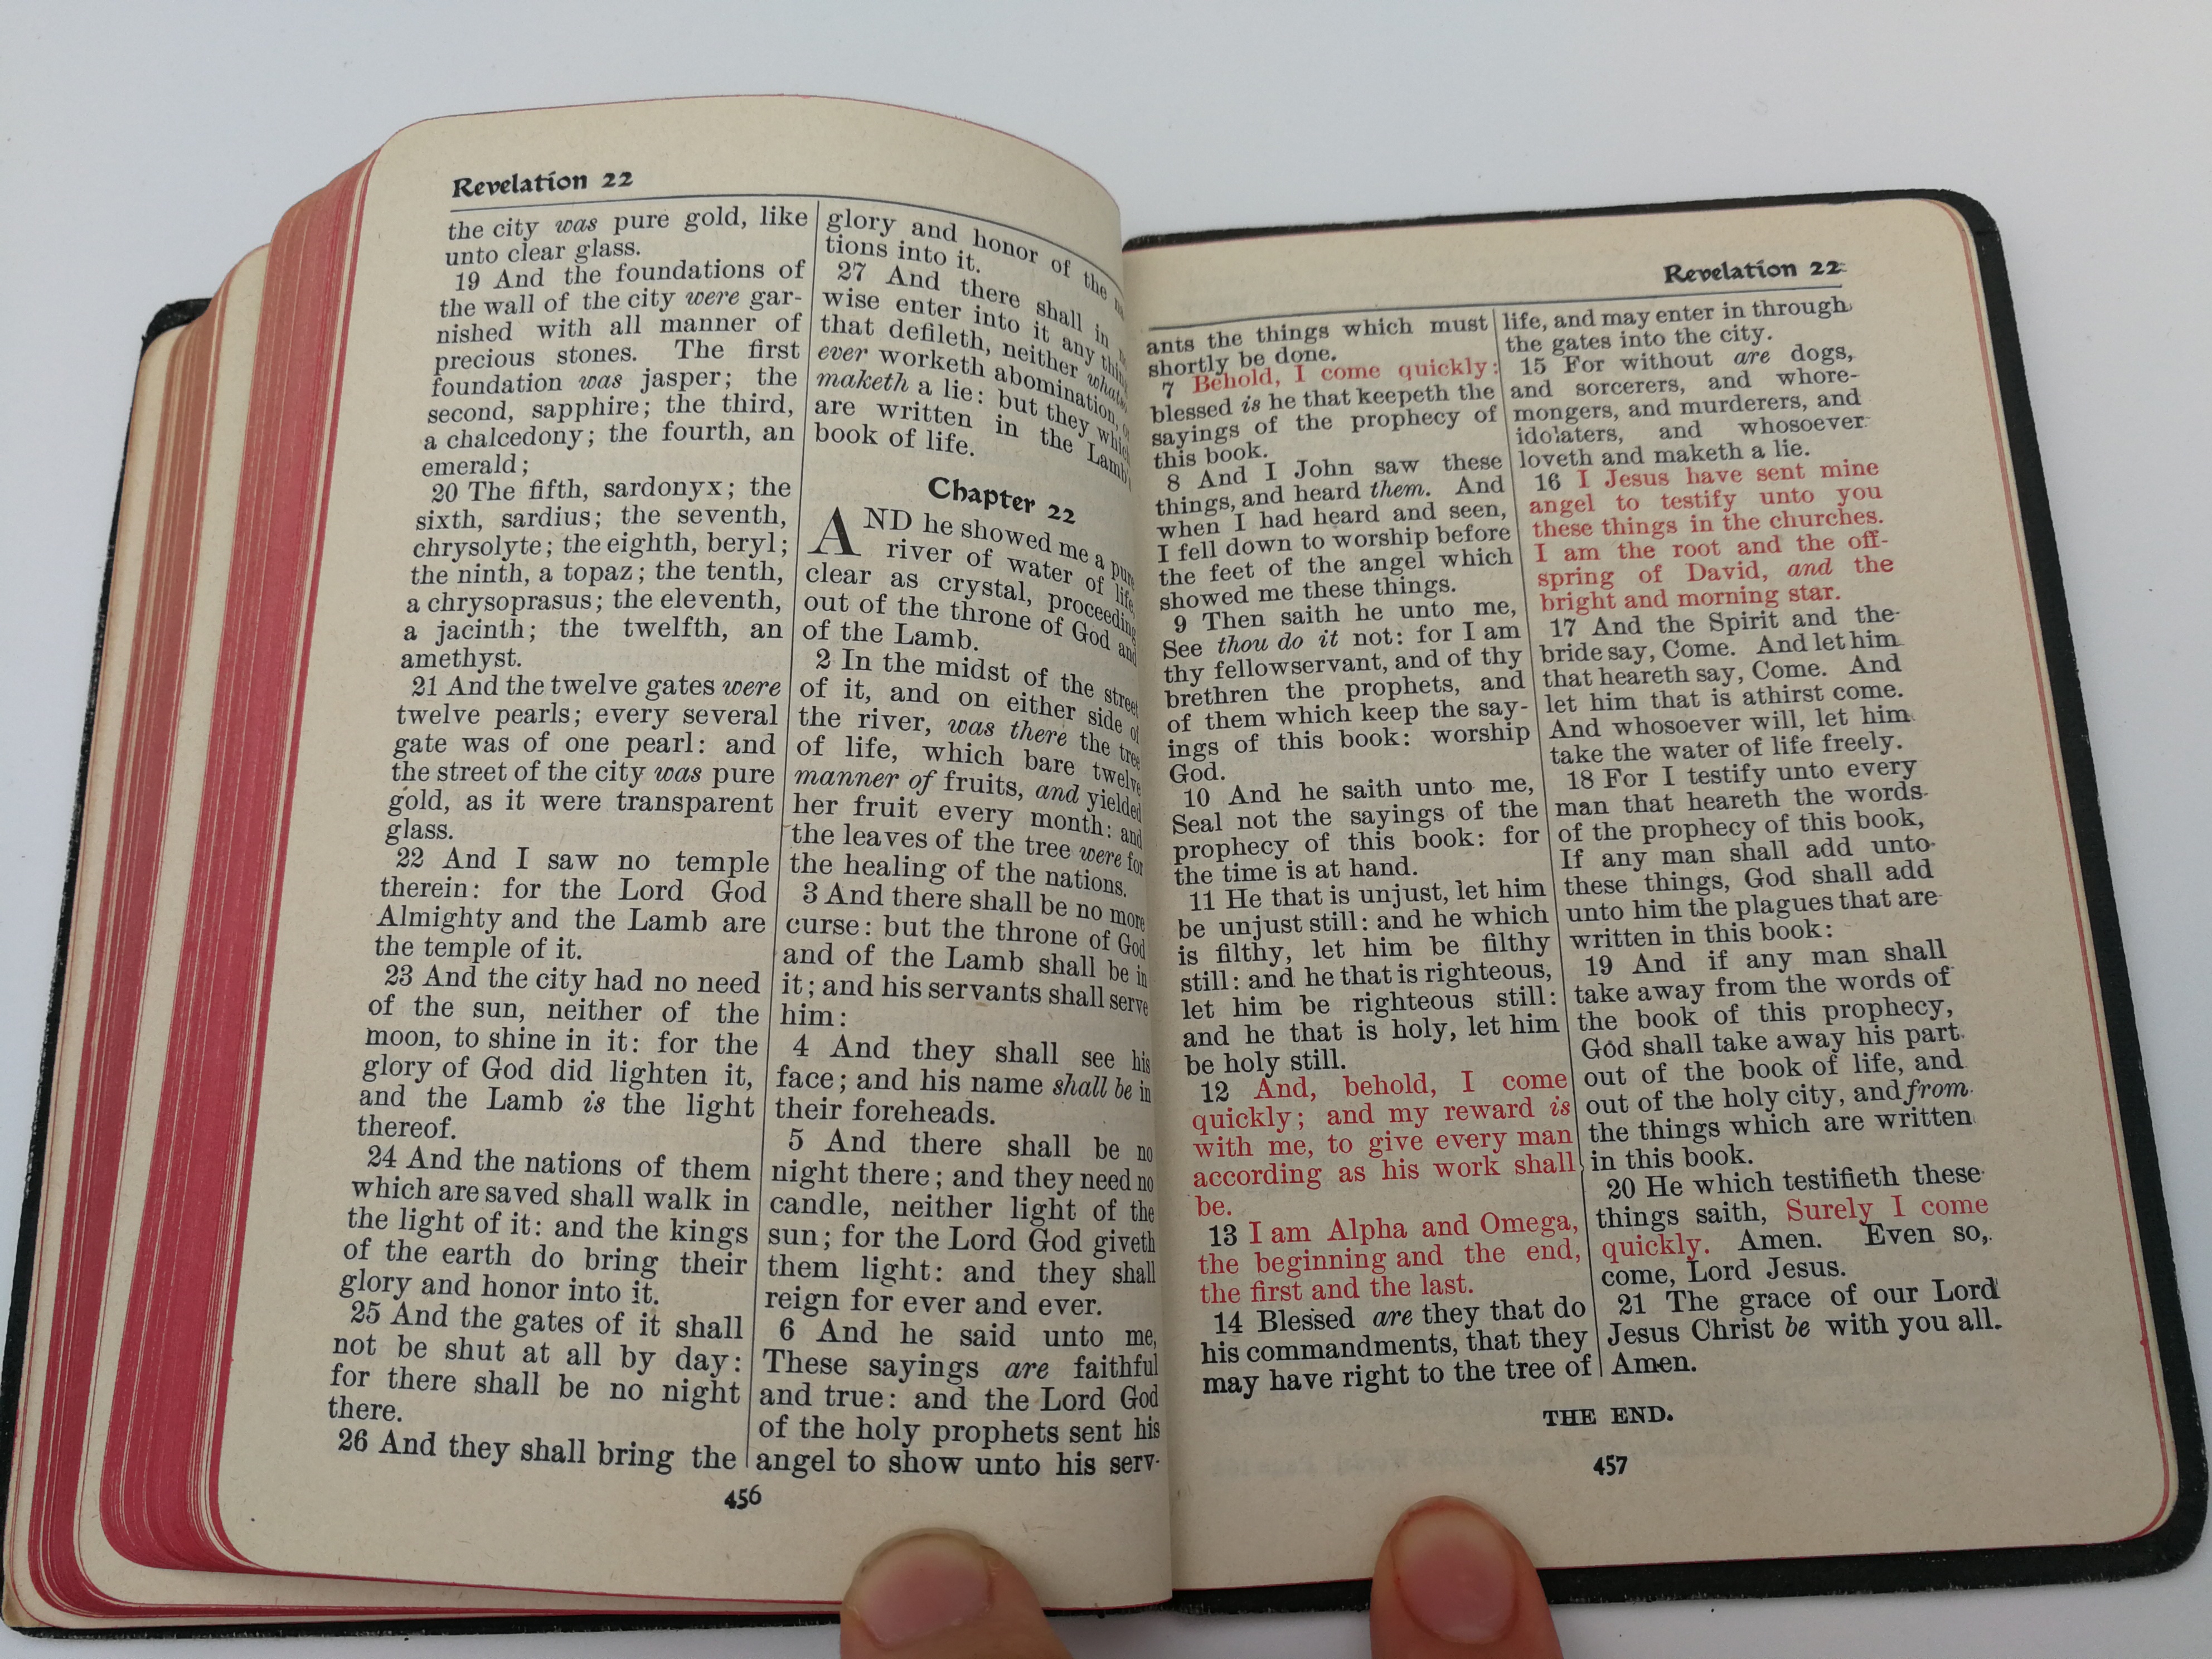 Revelation 22
the city was pure gold, like
unto clear glass.
19 And the foundations of
the wall of the city were gar-
nished with all manner of
precious stones. The first
foundation was jasper; the
second, sapphire; the third,
a chalcedony; the fourth, an
emerald;
20 The fifth, sardonyx; the
sixth, sardius; the seventh,
chrysolyte; the eighth, beryl;
the ninth, a topaz; the tenth,
a chrysoprasus; the eleventh,
a jacinth; the twelfth, an
amethyst.
21 And the twelve gates were
twelve pearls; every several
gate was of one pearl: and
the street of the city was pure
gold, as it were transparent
glass.
22 And I saw no temple
therein: for the Lord God
Almighty and the Lamb are
the temple of it.
23 And the city had no need
of the sun, neither of the
moon, to shine in it: for the
glory of God did lighten it,
and the Lamb is the light
thereof.
24 And the nations of them
which are saved shall walk in
the light of it: and the kings
of the earth do bring their
glory and honor into it.
25 And the gates of it shall
not be shut at all by day:
for there shall be no night
there.
26 And they shall bring the
glory and honor of the
tions into it.
27 And there shall in
wise enter into it any thing
that defileth, neither
ever worketh abomination,
maketh a lie: but they which
are written in the Lamb's
book of life.
Chapter 22
AND he showed me a pure
river of water of life,
clear as crystal, proceeding
out of the throne of God and
of the Lamb.
2 In the midst of the street
of it, and on either side of
the river, was there the tree
of life, which bare twelve
manner of fruits, and yielded
her fruit every month: and
the leaves of the tree were for
the healing of the nations.
3 And there shall be no more
curse: but the throne of God
and of the Lamb shall be in
it; and his servants shall serve
him:
4 And they shall see his
face; and his name shall be in
their foreheads.
5 And there shall be no
night there; and they need no
candle, neither light of the
sun; for the Lord God giveth
them light: and they shall
reign for ever and ever.
6 And he said unto me,
These sayings are faithful
and true: and the Lord God
of the holy prophets sent his
angel to show unto his serv-
456
Revelation 22
ants the things which must
shortly be done.
7 Behold, I come quickly:
blessed is he that keepeth the
sayings of the prophecy of
this book.
8 And I John saw these
things, and heard them. And
when I had heard and seen,
I fell down to worship before
the feet of the angel which
showed me these things.
9 Then saith he unto me,
See thou do it not: for I am
thy fellowservant, and of thy
brethren the prophets, and
of them which keep the say-
ings of this book: worship
God.
10 And he saith unto me,
Seal not the sayings of the
prophecy of this book: for
the time is at hand.
11 He that is unjust, let him
be unjust still: and he which
is filthy, let him be filthy
still: and he that is righteous,
let him be righteous still:
and he that is holy, let him
be holy still.
12 And, behold, I come
quickly; and my reward is
with me, to give every man
according as his work shall
be.
13 I am Alpha and Omega,
the beginning and the end,
the first and the last.
14 Blessed are they that do
his commandments, that they
may have right to the tree of
life, and may enter in through
the gates into the city.
15 For without are dogs,
and sorcerers, and whore-
mongers, and murderers, and
idolaters, and whosoever
loveth and maketh a lie.
16 I Jesus have sent mine
angel to testify unto you
these things in the churches.
I am the root and the off-
spring of David, and the
bright and morning star.
17 And the Spirit and the
bride say, Come. And let him
that heareth say, Come. And
let him that is athirst come.
And whosoever will, let him
take the water of life freely.
18 For I testify unto every
man that heareth the words
of the prophecy of this book,
If any man shall add unto
these things, God shall add
unto him the plagues that are
written in this book:
19 And if any man shall
take away from the words of
the book of this prophecy,
God shall take away his part
out of the book of life, and
out of the holy city, and from
the things which are written
in this book.
20 He which testifieth these
things saith, Surely I come
quickly. Amen. Even so,
come, Lord Jesus.
21 The grace of our Lord
Jesus Christ be with you all.
Amen.
THE END.
457